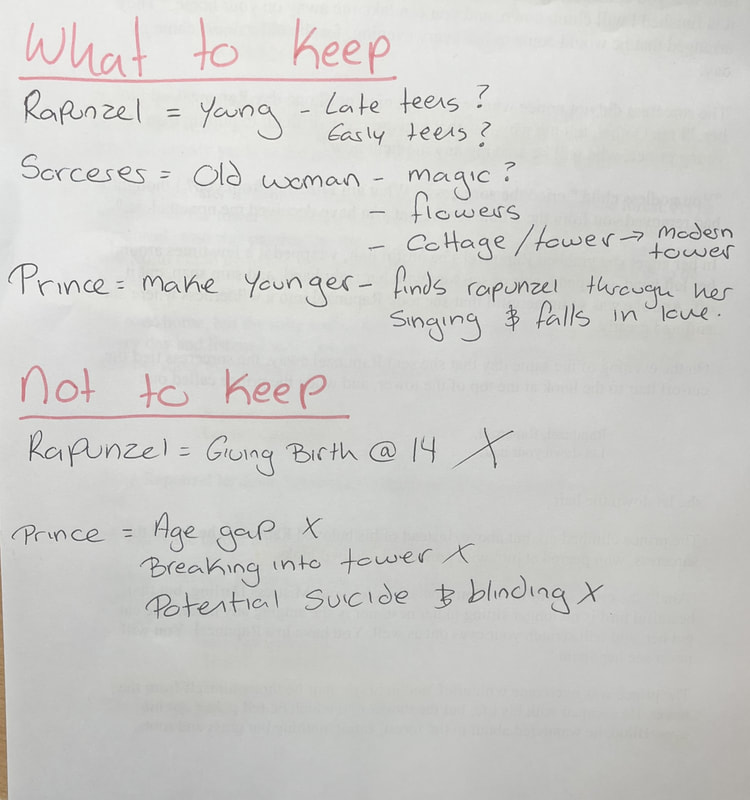 What to Keep
Rapunzel = Young - Late teens ?
Early teens ?
Sorceses = Old woman - magic ?
- flowers
- Cottage / tower → modern
tower
Prince = make younger - finds rapunzel through her
singing & falls in love.
Not to Keep
Rapunzel = Giving Birth @ 14 X
Prince = Age gap X
Breaking into tower X
Potential Suicide & blinding X